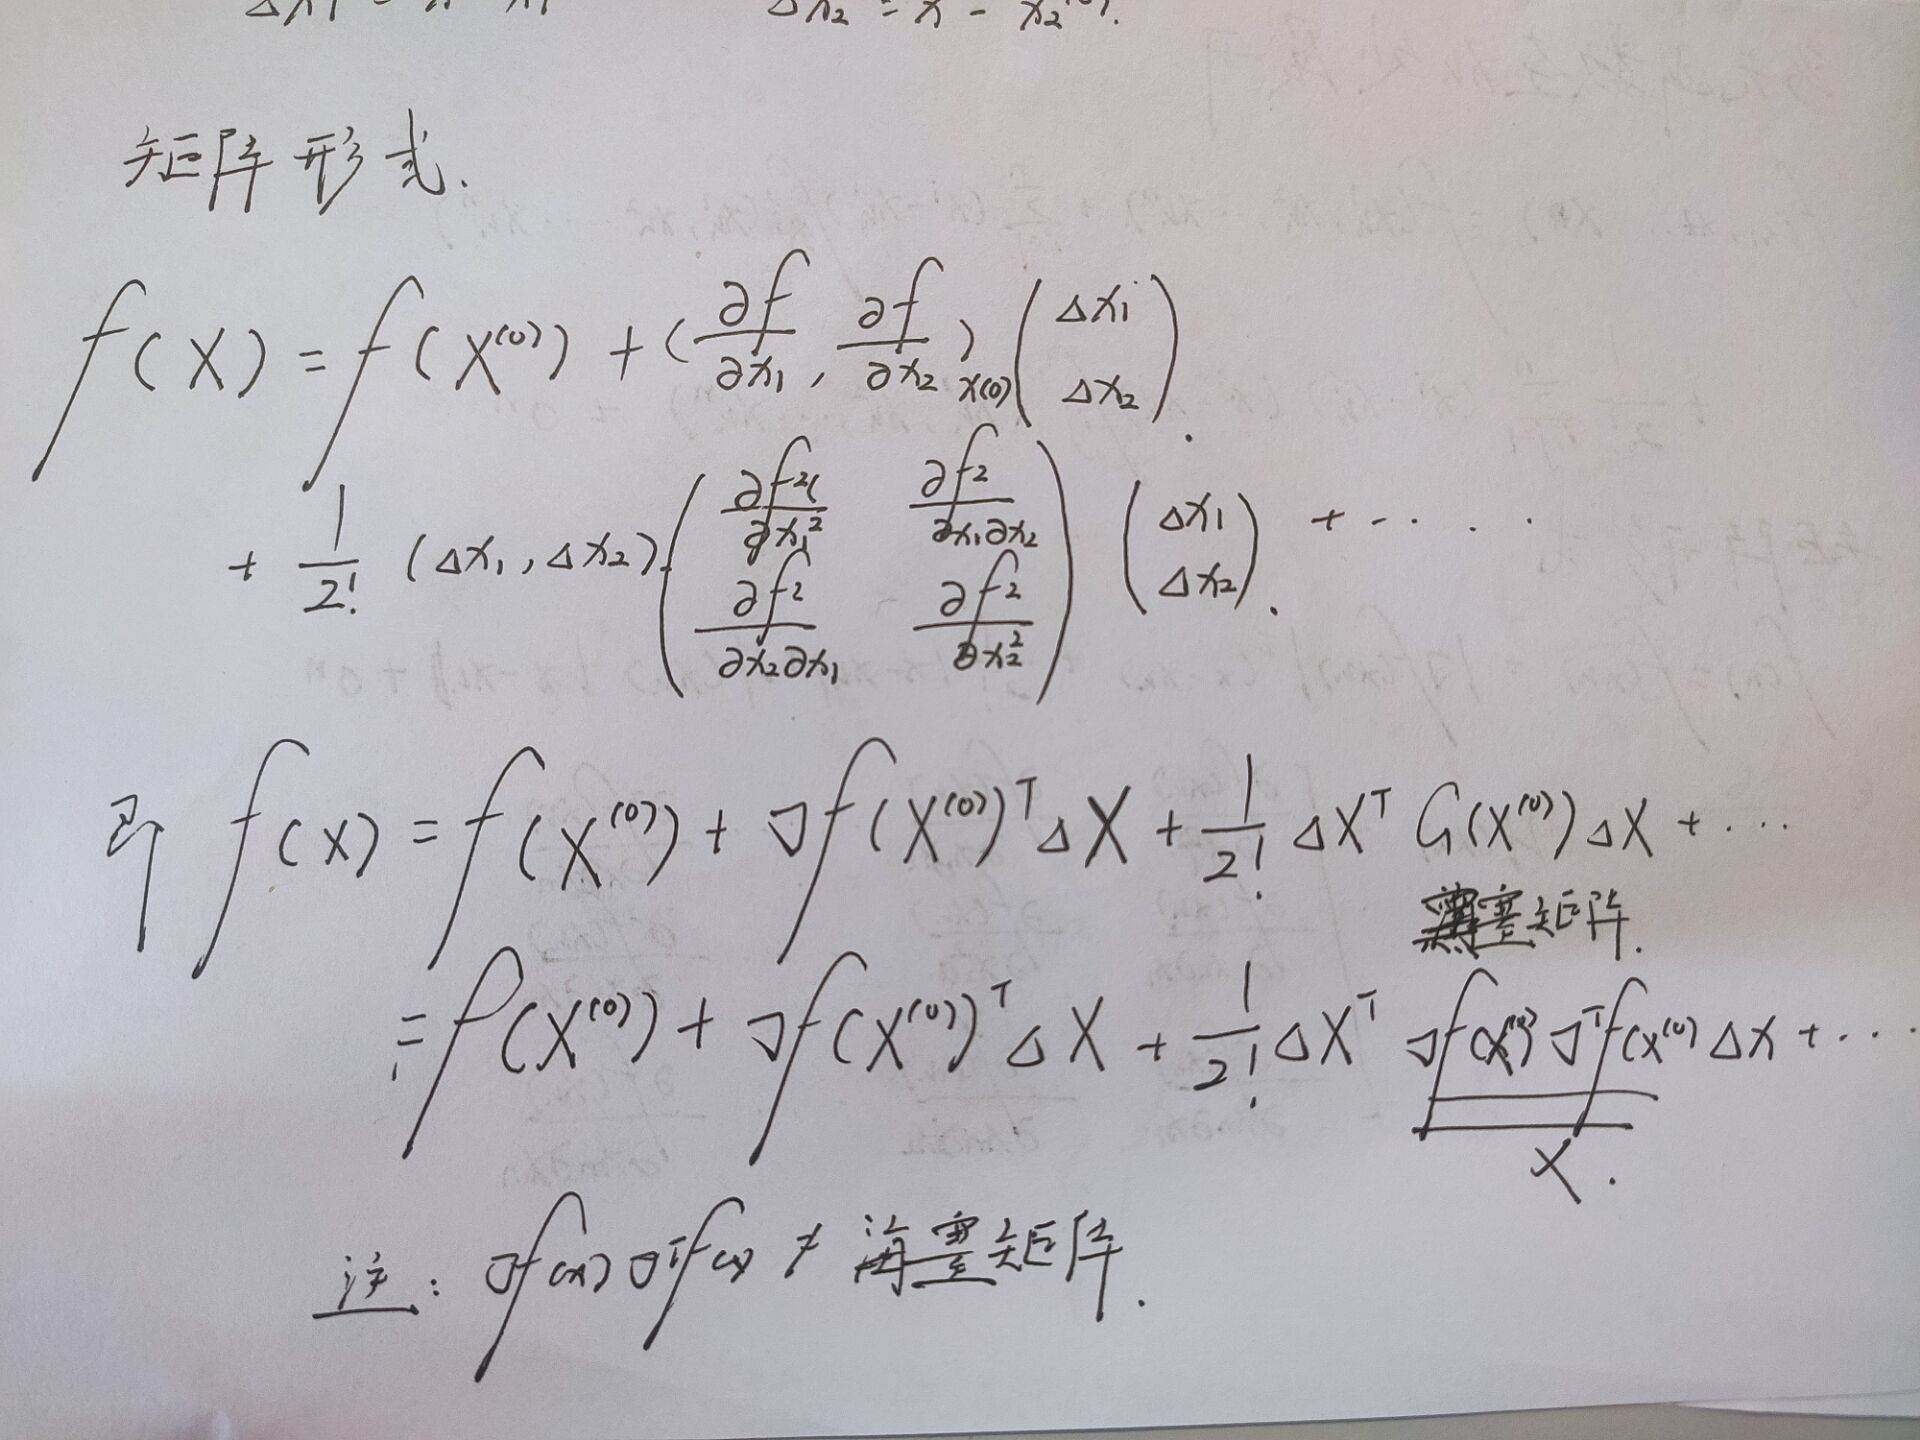 矩阵形式.
f(X) = f(X⁽⁰⁾) + (∂f/∂x₁, ∂f/∂x₂)x(0) (Δx₁ Δx₂).
+ 1/2! (Δx₁, Δx₂). (∂f²/∂x₁² ∂f²/∂x₁∂x₂ ∂f²/∂x₂∂x₁ ∂f²/∂x₂²) (Δx₁ Δx₂). + ....
即 f(X) = f(X⁽⁰⁾) + ∇f(X⁽⁰⁾)ᵀ ΔX + 1/2! ΔXᵀ G(X⁽⁰⁾) ΔX + ...
海塞矩阵.
= f(X⁽⁰⁾) + ∇f(X⁽⁰⁾)ᵀ ΔX + 1/2! ΔXᵀ ∇f(X⁽⁰⁾) ∇ᵀf(X⁽⁰⁾) ΔX + ...
X.
注: ∇f(x) ∇ᵀf(x) ≠ 海塞矩阵.